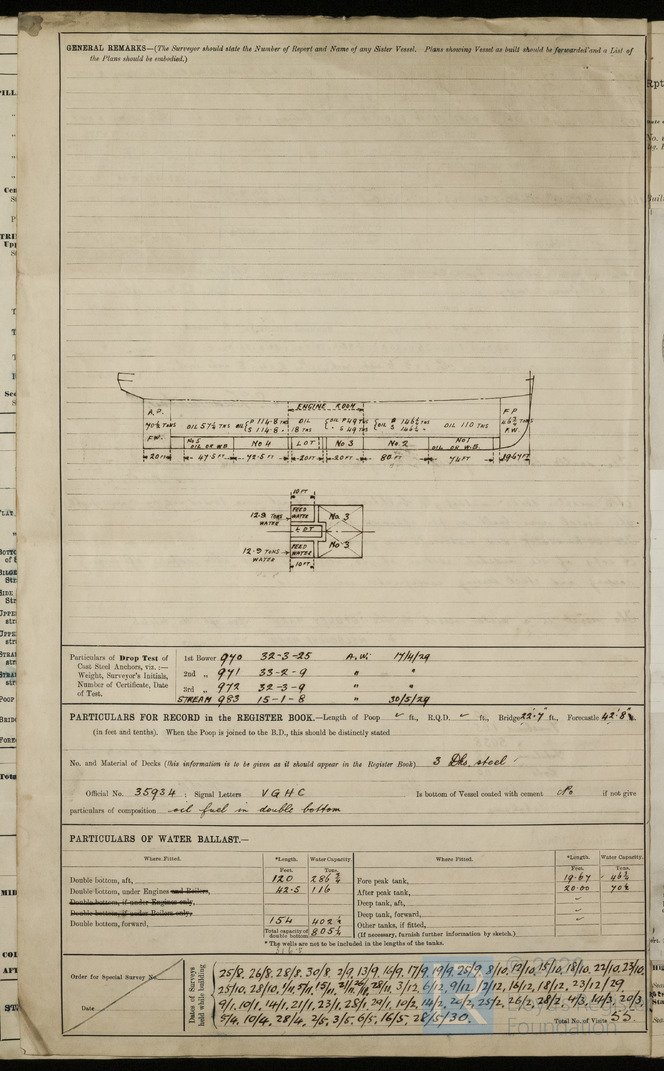 GENERAL REMARKS—(The Surveyor should state the Number of Report and Name of any Sister Vessel. Plans showing Vessel as built should be forwarded and a List of
the Plans should be embodied.)
ENGINE ROOM
A.P.
70½ TONS
F.W.
OIL 57½ TNS
OIL P 114·8 TNS
S 114·8 "
OIL
18 TNS
OIL P 49 TNS
" S 49 TNS
OIL P 146½ TNS
S 146½ "
OIL 110 TNS
F P
46¾ TONS
F.W.
No 5
OIL OR W.B.
No 4
L O T
No. 3
No. 2
No 1
OIL OR W.B.
20 FT
47·5 FT
72·5 FT
20 FT
20 FT
80 FT
74 FT
19·67 FT
10 FT
12·9 TONS
WATER
FEED
WATER
No. 3
L.O.T
12·9 TONS
WATER
FEED
WATER
No 3
10 FT
Particulars of Drop Test of
Cast Steel Anchors, viz.:—
Weight, Surveyor's Initials,
Number of Certificate, Date
of Test.
1st Bower 970 32-3-25 A.W. 17/4/29
2nd " 971 33-2-9 " "
3rd " 972 32-3-9 " "
STREAM 983 15-1-8 " 30/5/29
PARTICULARS FOR RECORD in the REGISTER BOOK.—Length of Poop ✓ ft., R.Q.D. ✓ ft., Bridge 22·7 ft., Forecastle 42·8 ft.
(in feet and tenths). When the Poop is joined to the B.D., this should be distinctly stated
No. and Material of Decks (this information is to be given as it should appear in the Register Book) 3 Dks. steel
Official No. 35934 ; Signal Letters V G H C Is bottom of Vessel coated with cement No if not give
particulars of composition oil fuel in double bottom
PARTICULARS OF WATER BALLAST.—
Where Fitted. *Length. Water Capacity. Where Fitted. *Length. Water Capacity.
Feet. Tons. Feet. Tons.
Double bottom, aft, 120 286¾ Fore peak tank, 19·67 46¾
Double bottom, under Engines and Boilers, 42·5 116 After peak tank, 20·00 70½
Double bottom, if under Engines only, Deep tank, aft, ✓
Double bottom, if under Boilers only, Deep tank, forward, ✓
Double bottom, forward, 154 402½ Other tanks, if fitted, ✓
Total capacity of double bottom 805¼ (If necessary, furnish further information by sketch.)
* The wells are not to be included in the lengths of the tanks.
316·5
Order for Special Survey No.
Date
Dates of Surveys
held while building
25/8, 26/8, 28/8, 30/8, 2/9, 13/9, 16/9, 17/9, 19/9, 25/9, 8/10, 12/10, 15/10, 18/10, 22/10, 23/10,
25/10, 28/10, 3/12, 6/12, 9/12, 12/12, 16/12, 18/12, 23/12/29
9/1, 10/1, 14/1, 21/1, 23/1, 28/1, 29/1, 10/2, 14/2, 20/2, 25/2, 26/2, 28/2, 4/3, 14/3, 20/3,
5/4, 10/4, 28/4, 2/5, 3/5, 6/5, 16/5, 28/5/30.
Total No. of Visits 55
© 2020
Lloyd's Register
Foundation